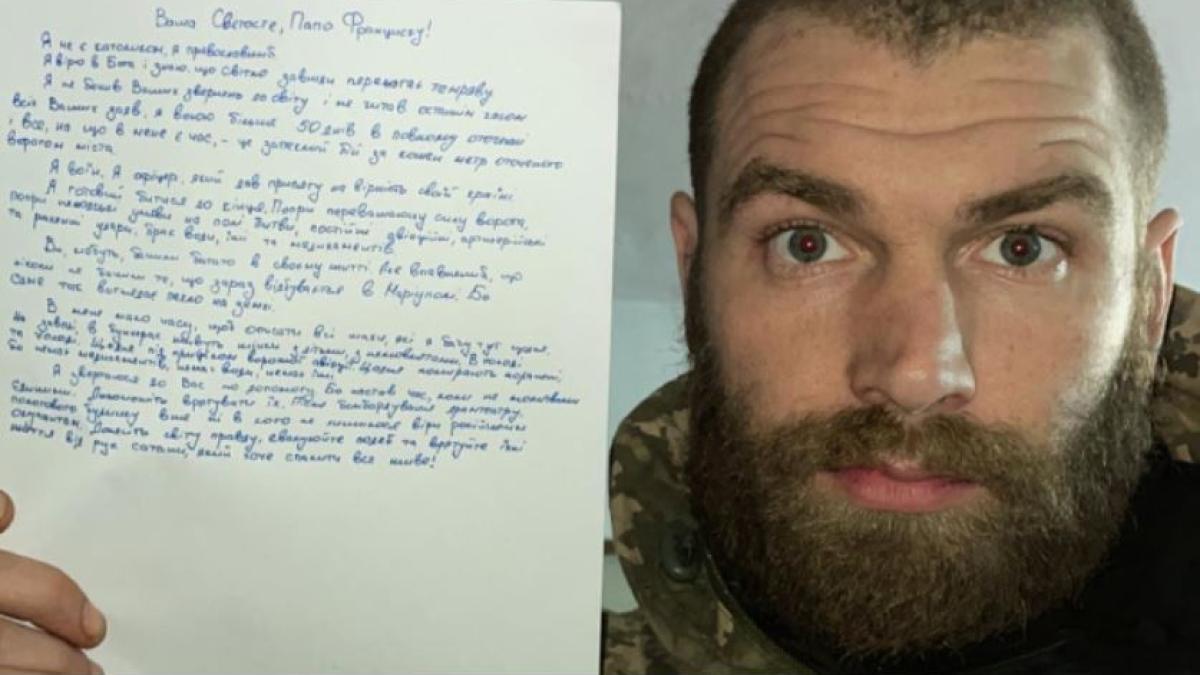 Ваша Святосте, Папо Франциску!
Я не є католиком, я православний.
Я вірю в Бога і знаю, що світло завжди перемагає темряву
Я не бачив Ваших звернень до світу і не читав останнім часом
всіх Ваших заяв, я воюю більше 50 днів в повному оточенні
і все, на що в мене є час, - це запеклий бій за кожен метр оточеного
ворогом міста
Я воїн. Я офіцер, який дав присягу на вірність своїй країні
Я готовий битися до кінця. Попри переважаючу силу ворога,
попри нелюдські умови на полі битви, постійні авіаційні, артилерійські
та ракетні удари, брак води, їжі та медикаментів
Ви, мабуть, бачили багато в своєму житті. Але впевнений, що
ніколи не бачили те, що зараз відбувається в Маріуполі. Бо
саме так виглядає пекло на землі.
В мене мало часу, щоб описати всі жахи, які я бачу тут щодня.
На заводі, в бункерах живуть жінки з дітьми, з немовлятами. В холоді
та голоді. Щодня під прицілом ворожої авіації. Щодня помирають поранені,
бо немає медикаментів, немає води, немає їжі
Я звертаюся до Вас по допомогу. Бо настав час, коли не молитвами
єдиними. Допоможіть врятувати їх. Після бомбардування драмтеатру,
пологового будинку вже ні в кого не лишилося віри російським
окупантам. Донесіть світу правду, евакуюйте людей та врятуйте їхні
життя від рук сатани, який хоче спалити все живе!